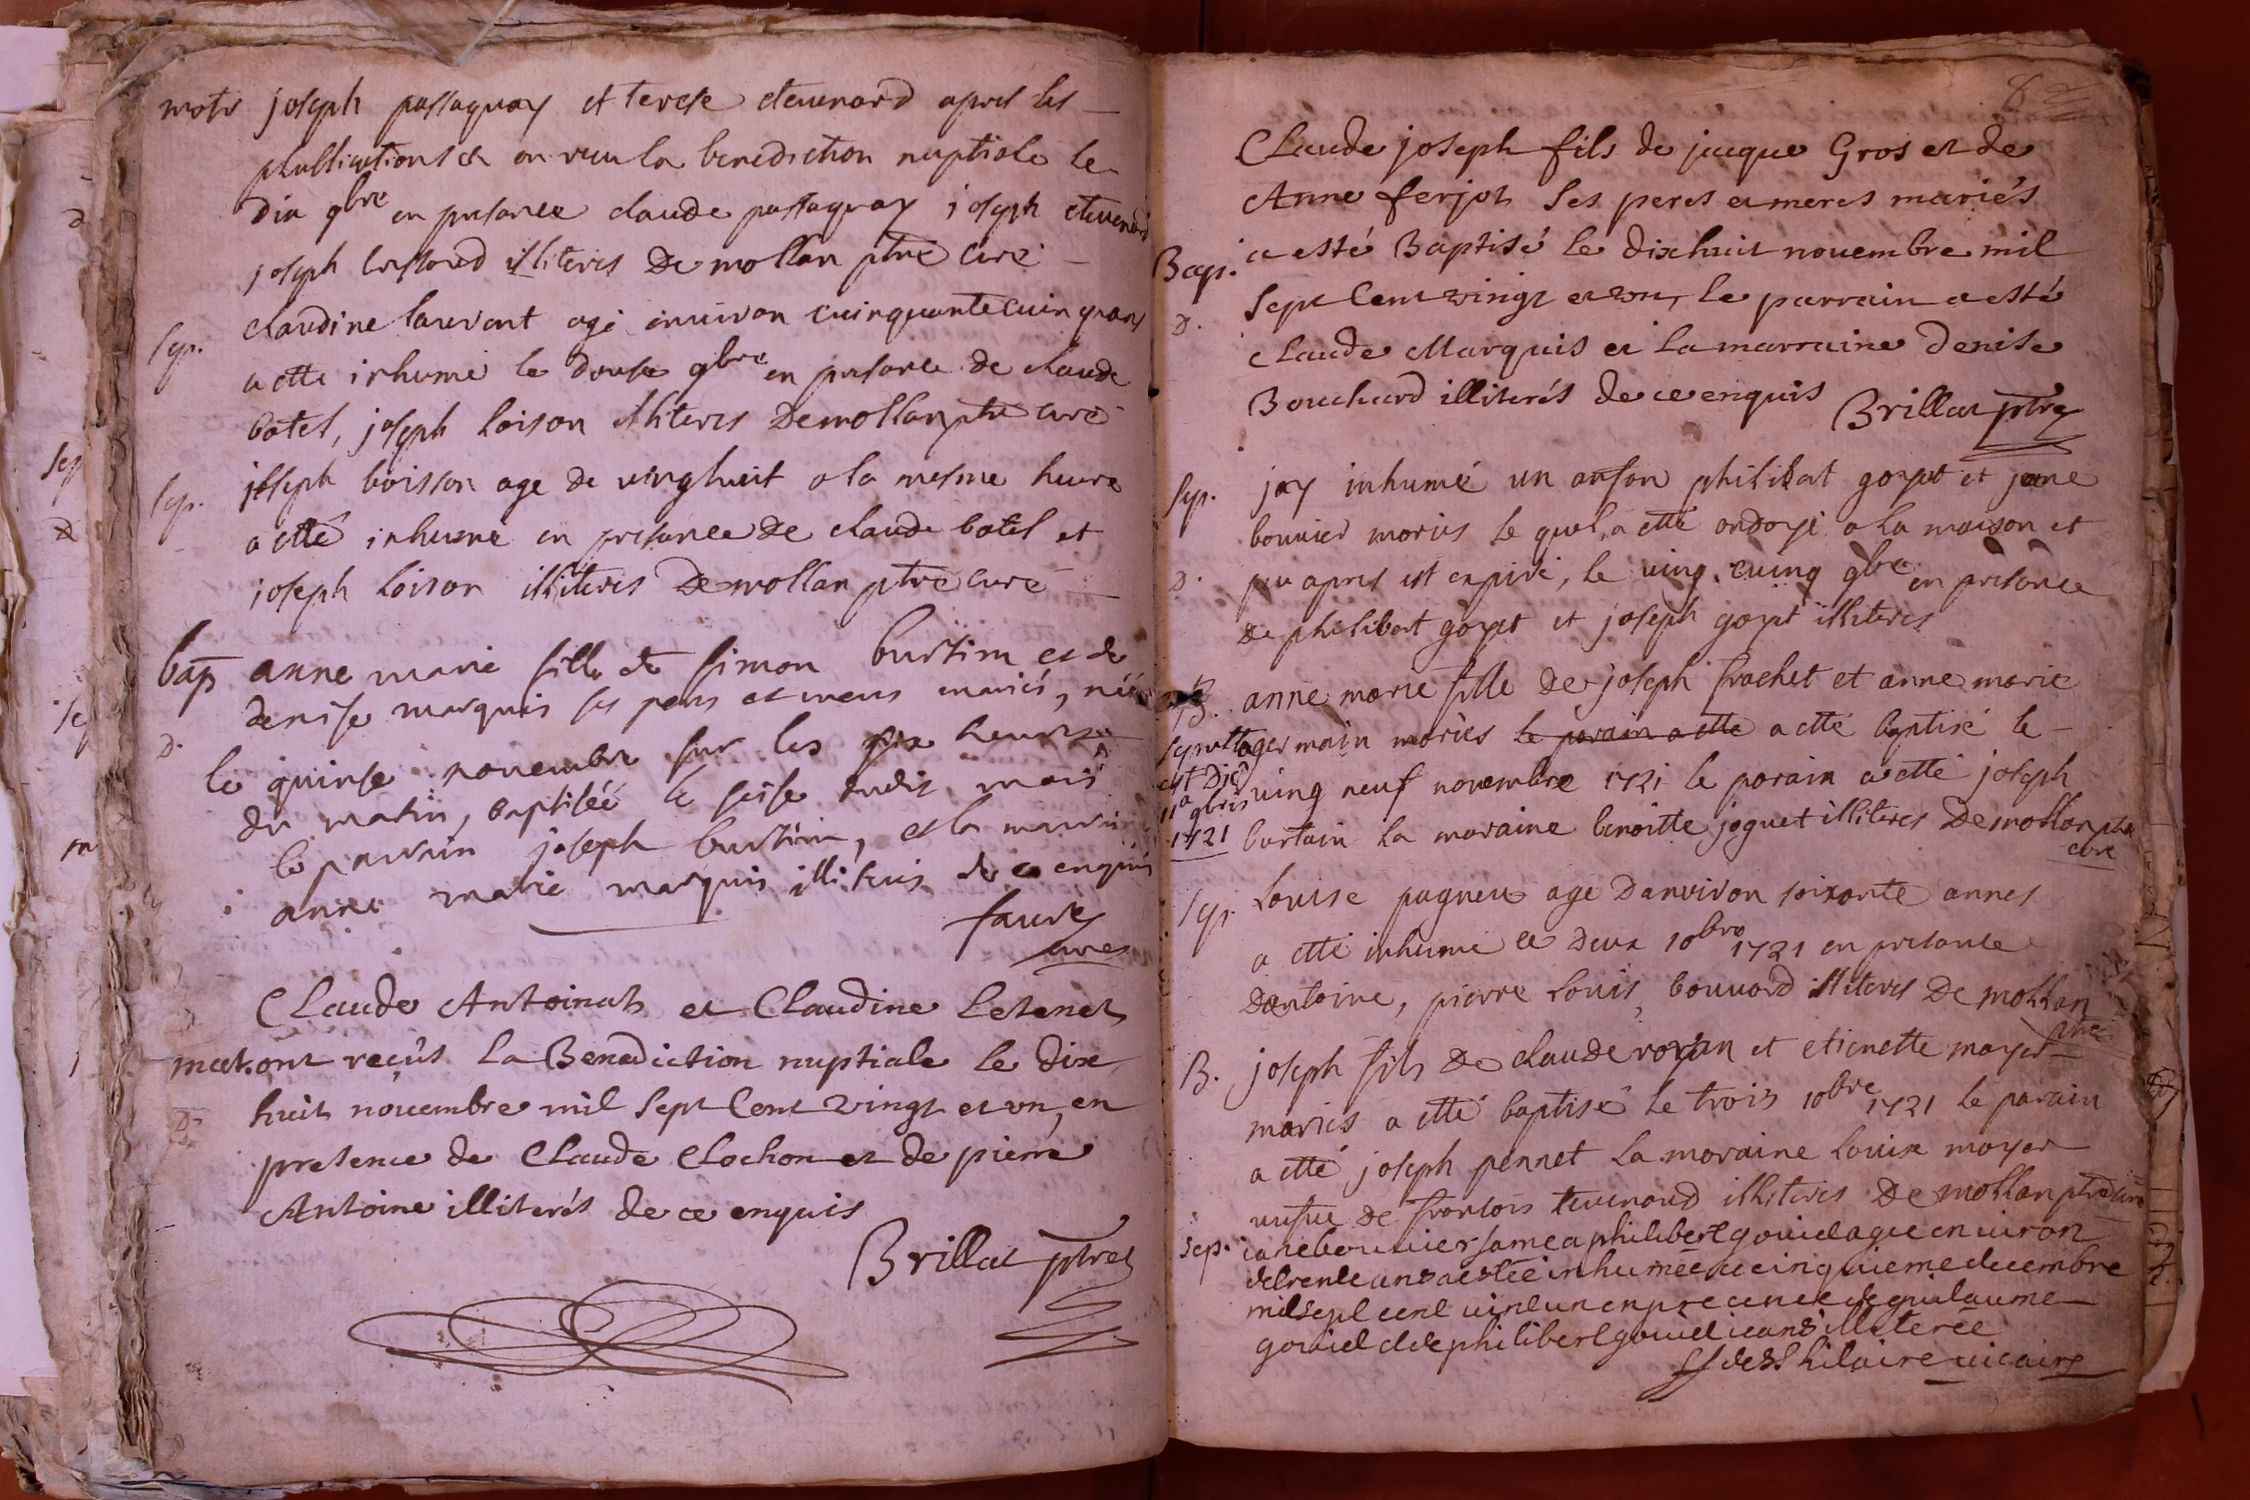 matr joseph passaquay et terese etevenard apres les
publications & on recu la benediction nuptiale le
dix 9bre en presance claude passaquay joseph etevenard
joseph illiteres De mollan ptre curé
Sep. claudine laurent agé environ cuinquante cuinq ans
a etté inhumé le douse 9bre en presance de claude
batel, joseph loison illiteres De mollan ptre curé
Sep. joseph boisson age de vinghuit a la mesme heure
a etté inhumé en presance de claude batel et
joseph loison illiteres De mollan ptre curé
bap anne marie fille de simon burtin et de
denise marquis ses peres et meres mariés, née
D.
le quinse novembre sur les six heures
du matin, baptisée le seise dudit mois
le parrain joseph burtin, et la marraine
anne marie marquis illiterés de ce enquis
faure
curé
Claude Antoinat et Claudine Letenet
mat. ont reçûs La Benediction nuptiale le dix
huit novembre mil sept Cent vingt et un, en
D.
presence de Claude Clochon et de pierre
Antoine illiterés de ce enquis
Brillat ptre
Claude joseph fils de jacque Gros et de
Anne ferjot ses peres et meres mariés
Bap. a esté Baptisé le dixhuit novembre mil
Sept Cent vingt et un, le parrain a esté
D.
Claude Marquis et la marraine Denise
Bouchard illiterés de ce enquis Brillat ptre
Sep. jay inhumé un anfan philibat goyet et jane
bouvier mariés le quel a etté ondoyé a la maison et
D. peu apres est expiré, le ving cuinq 9bre en presance
de philibert goyet et joseph goyet illiteres
B. anne marie fille de joseph frachet et anne marie
germain mariés le parain a etté a etté baptisé le
sepulta
est Die
11a 9bris
1721
ving neuf novembre 1721 le parain a etté joseph
burtain la maraine benoitte joguet illiteres De mollan ptre
curé
Sep. Louise pagneu age Danviron soixante annes
a etté inhumé le Deux 10bre 1721 en presance
Dantoine, pierre Louis, bouvard illiteres De mollan
ptre
B. joseph fils De claude royan et etienette moyer
mariés a etté baptisé le trois 10bre 1721 le parain
a etté joseph pennet la maraine louise moyer
vefue de fransois tevenard illiteres De mollan ptre curé
Sep. iane bouuier fame a philibert gouiel agee enuiron
de trente ans a estée inhumée le cinquieme decembre
mil sept cent vint un en precence de guilaume
gouiel et de philibert gouiel illeterée
de St hilaire uicaire